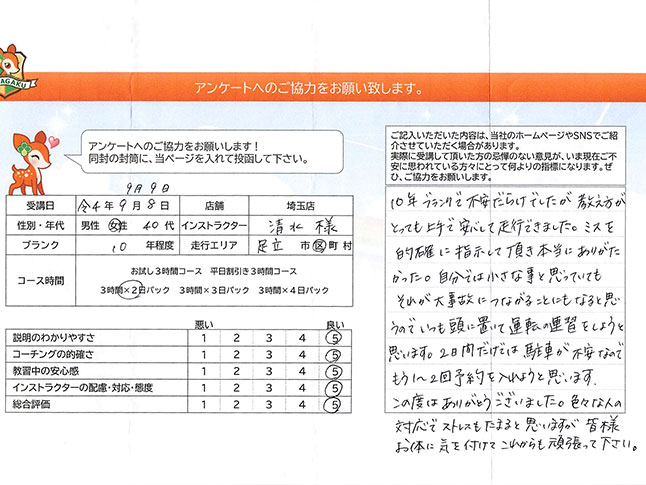 AGAKU
アンケートへのご協力をお願い致します。
アンケートへのご協力をお願いします！
同封の封筒に、当ページを入れて投函して下さい。
9月9日
受講日 令4年9月8日 店舗 埼玉店
性別・年代 男性 女性 40代 インストラクター 清水様
ブランク 10年程度 走行エリア 足立 市区町村
コース時間
お試し3時間コース 平日割引き3時間コース
3時間×2日パック 3時間×3日パック 3時間×4日パック
悪い 良い
説明のわかりやすさ 1 2 3 4 5
コーチングの的確さ 1 2 3 4 5
教習中の安心感 1 2 3 4 5
インストラクターの配慮・対応・態度 1 2 3 4 5
総合評価 1 2 3 4 5
ご記入いただいた内容は、当社のホームページやSNSでご紹
介させていただく場合があります。
実際に受講して頂いた方の忌憚のない意見が、いま現在ご不
安に思われている方々にとって何よりの指標になります。ぜ
ひ、ご協力をお願いします。
10年ブランクで不安だらけでしたが 教え方が
とっても上手で安心して走行できました。ミスを
的確に指示して頂き本当にありがた
かった。自分では小さな事と思っていても
それが大事故につながることにもなると思
うのでいつも頭に置いて運転の練習をしようと
思います。2日間だけでは駐車が不安なので
もう1〜2回予約を入れようと思います。
この度はありがとうございました。色々な人の
対応でストレスもたまると思いますが 皆様
お体に気を付けてこれからも頑張って下さい。